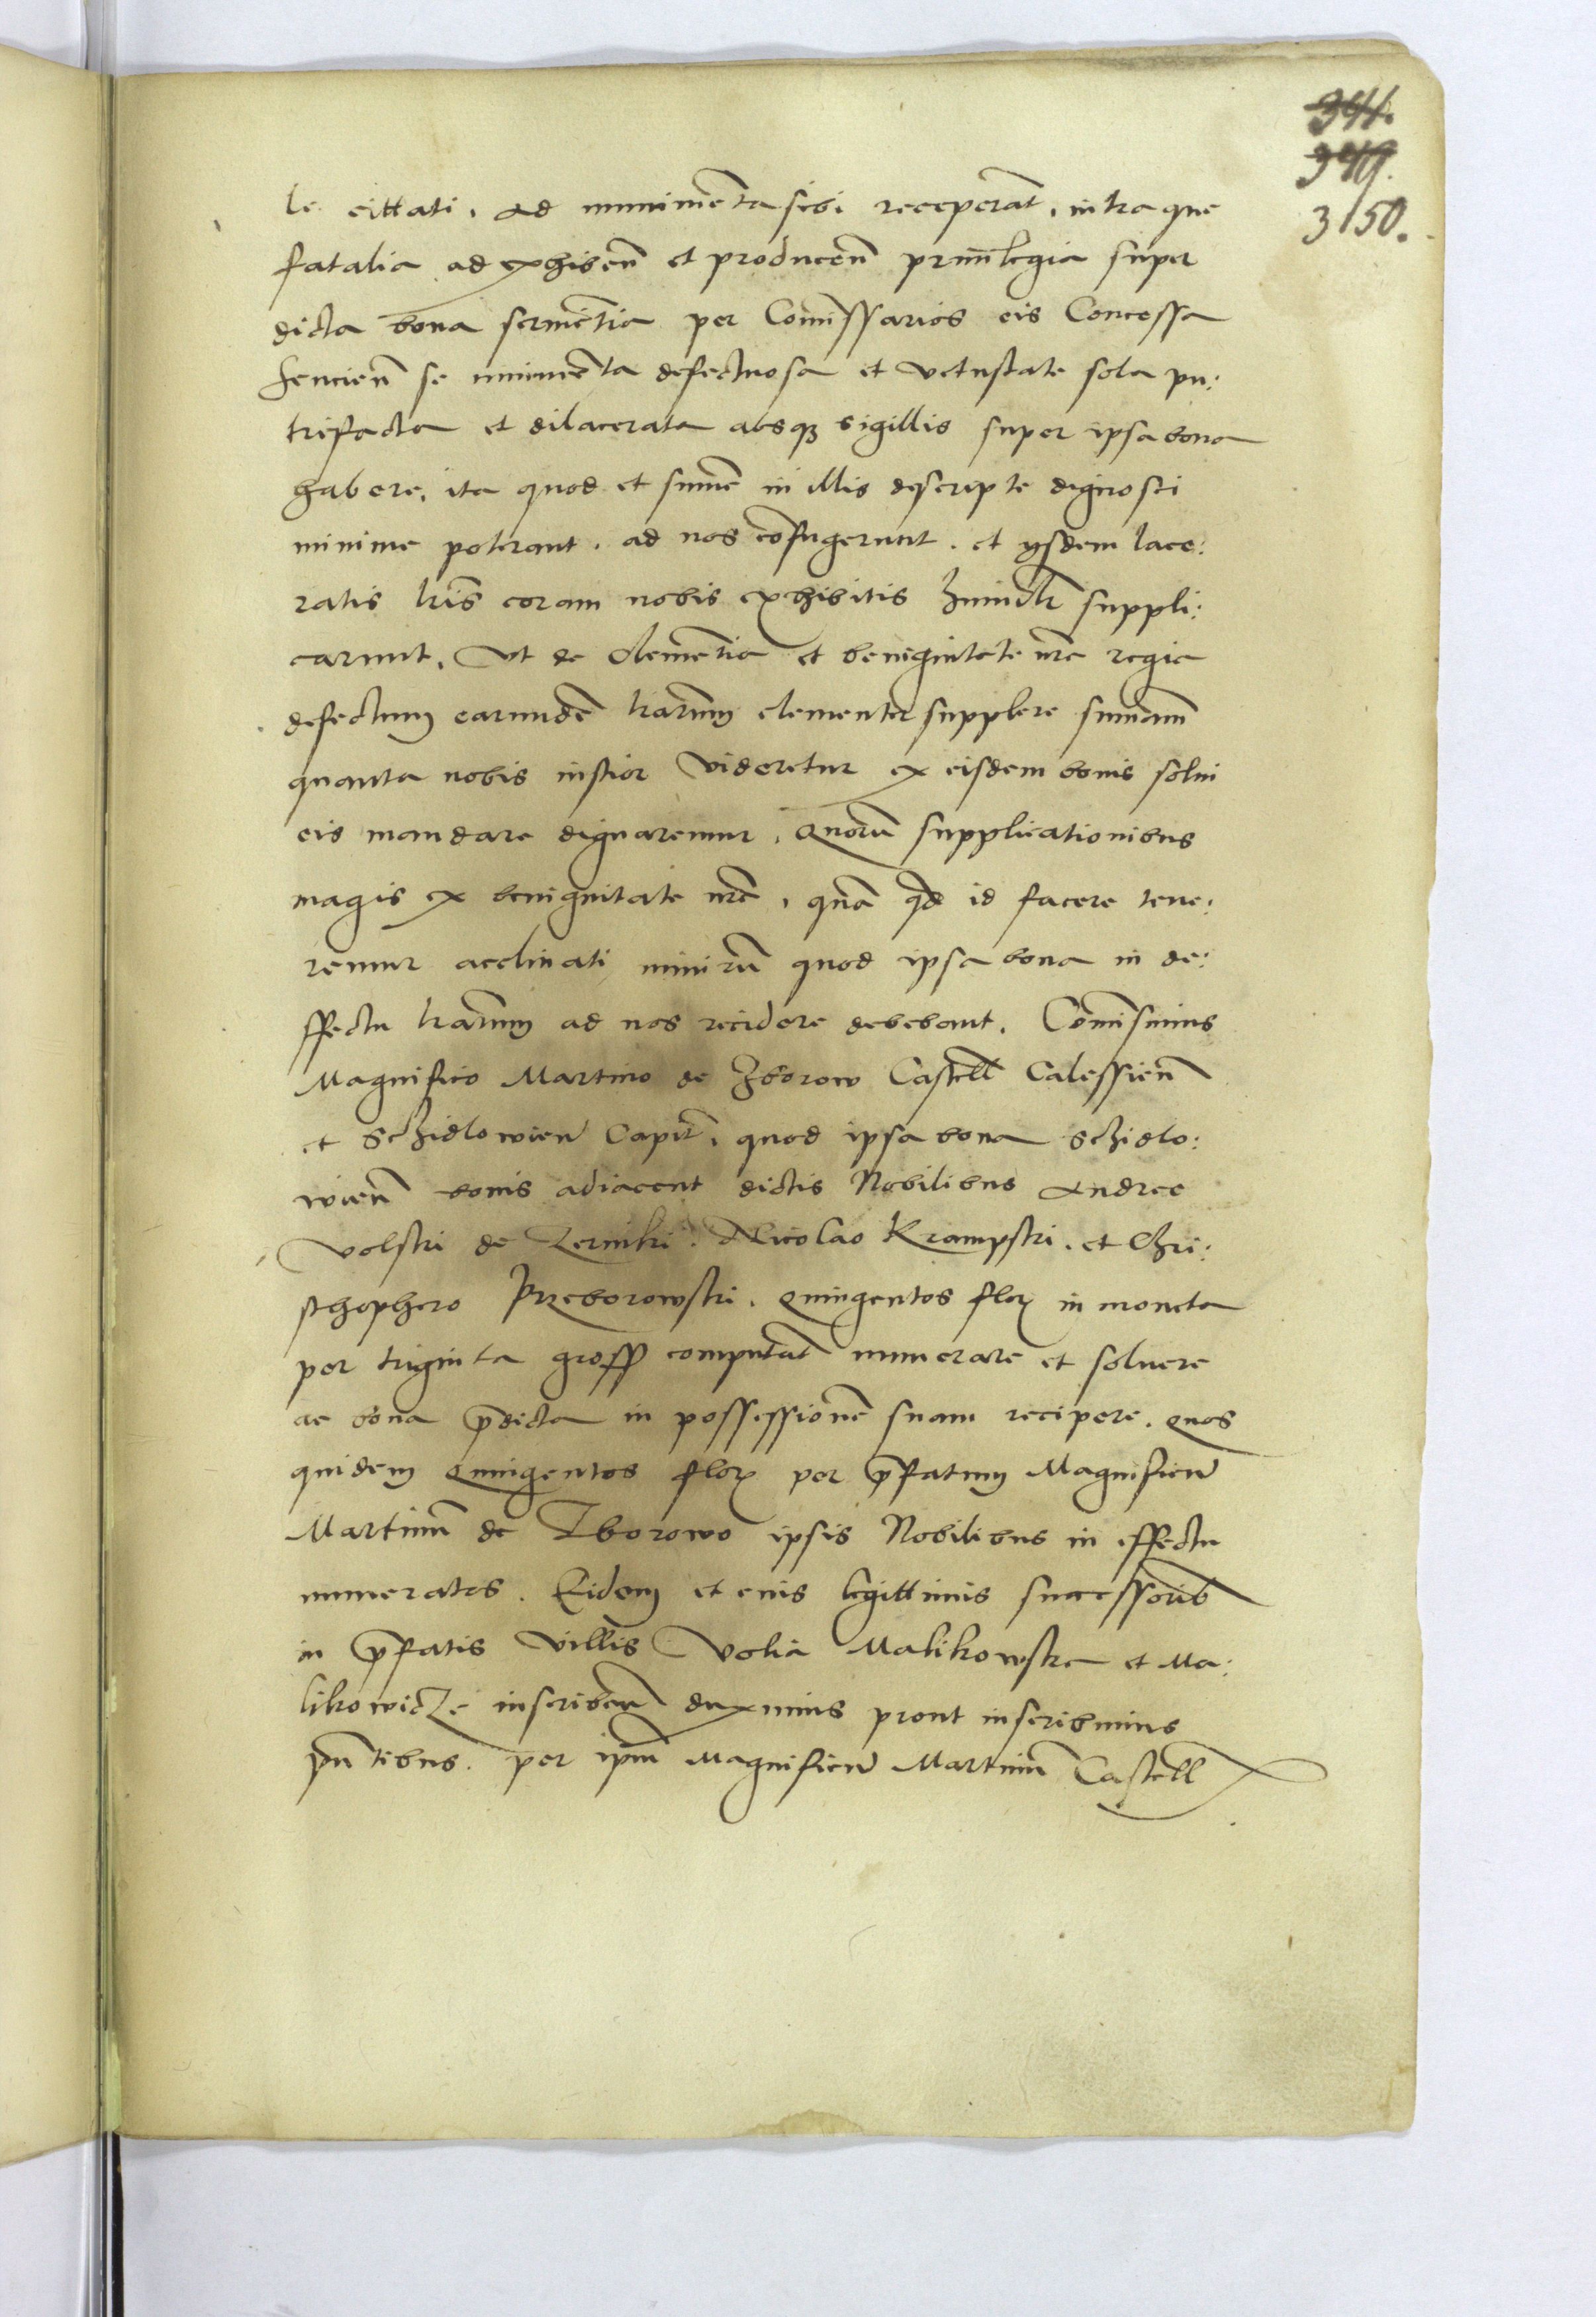 341.
349.
350.
le cittati. ad munimēta sibi receperāt, intra que
fatalia ad exhibeñ et produceñ priuilegia super
dicta bona seruientia per Comissarios eis Concessa
senciēn se munimēta defectuosa et vetustate sola pu:
trefacta et dilacerata absq3 sigillis super ipsa bona
habere, ita quod et summe in illis descripte dignosci
minime poterant. ad nos cōfugerunt. et ysdem lace:
ratis lris coram nobis exhibitis humiltr suppli:
carunt. Vt de clemētia et benignitate nre regia
defectum earundē lrarum clementer supplere sumam
quanta nobis iustior videretur ex eisdem bonis solui
eis mandare dignaremur. Quorū supplicationibus
magis ex benignitate nrā, quā qd id facere tene:
remur acclinati nimirū quod ipsa bona in de:
ffectu lrarum ad nos recidere debebant. Comisimus
Magnifico Martino de Zborow Castell Calessieñ
et Schidlowieñ Capit. quod ipsa bona Schidlo:
wieñ bonis adiacent dictis Nobilibus Andree
Volski de Zerniki. Nicolao Krampski. et Chri:
sthophero Przeborowski. Quingentos flor in moneta
per triginta gross computat numerare et soluere
ac bona p̄dicta in possessionē suam recipere. Quos
quidem Quingentos flor per p̄fatum Magnificū
Martinū de Zborowo ipsis Nobilibus in effectu
numeratos. Eidem et eius legittimis successorib
in p̄fatis villis Volia Malikowska et Ma:
likowicze inscribeñ duximus prout inscribimus
pn̄tibus. per ipm̄ Magnificū Martinū Castell